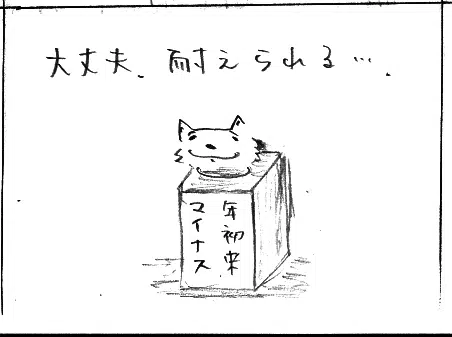 大丈夫、耐えられる…、
年初来
マイナス